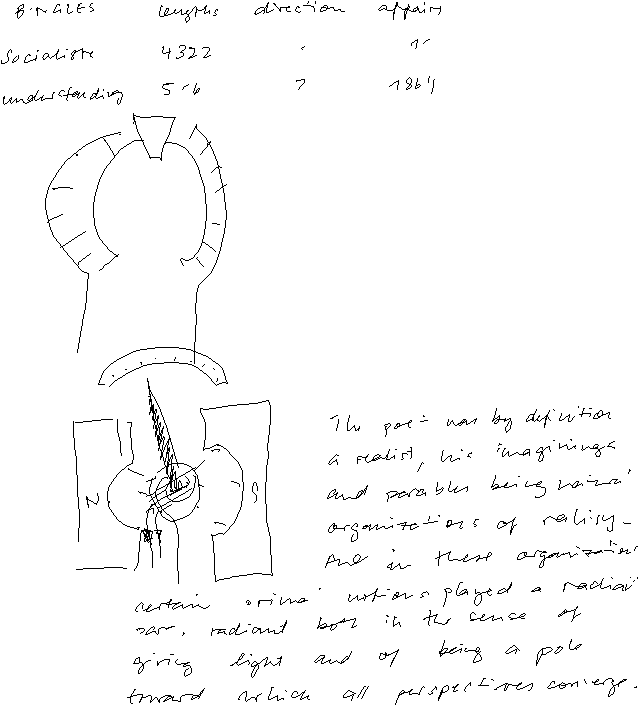 BINGLES lengths direction affairs
Socialists 4322
understanding 5-6 7 1864
N S
The poet was by definition
a realist, his imaginings
and parables being natural
organizations of reality.
And in these organizations
certain primal notions played a radial
part, radiant both in the sense of
giving light and of being a pole
toward which all perspectives converge.